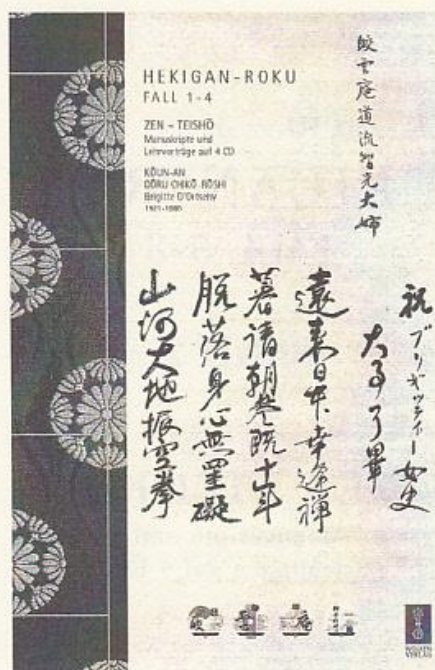 HEKIGAN-ROKU
FALL 1-4
ZEN - TEISHŌ
Manuskripte und
Lehrvorträge auf 4 CD
KŌUN-AN
DŌRU CHIKŌ-RŌSHI
Brigitte D'Ortschy
1921-1990
皎雲庵道流智光大姉
祝 ブリギッティー女史
大事了畢
遠来日本幸逢禅
暮請朝参既十年
脱落身心無罣礙
山河大地振空拳
VERLAG